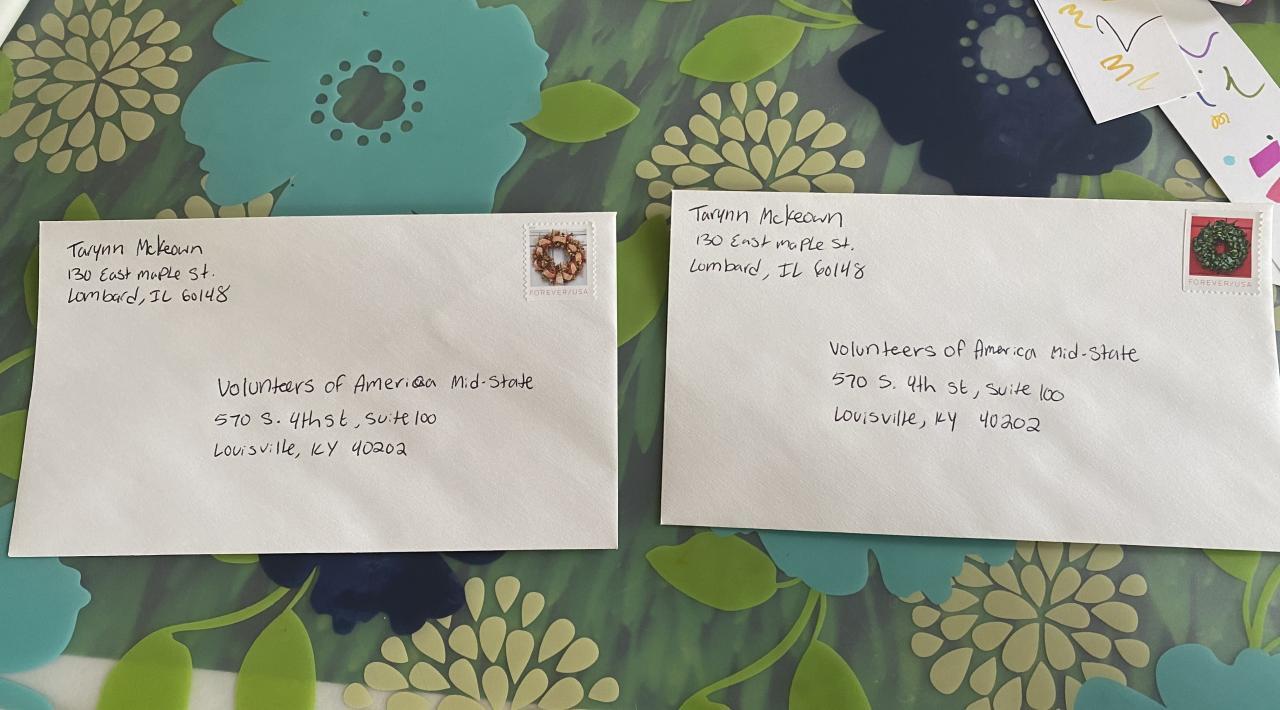 Tarynn McKeown
130 East maple St.
Lombard, IL 60148
FOREVER/USA
Volunteers of America Mid-State
570 S. 4th st, Suite 100
Louisville, KY 40202
Tarynn McKeown
130 East maple St.
Lombard, IL 60148
FOREVER/USA
Volunteers of America Mid-State
570 S. 4th st, Suite 100
Louisville, KY 40202